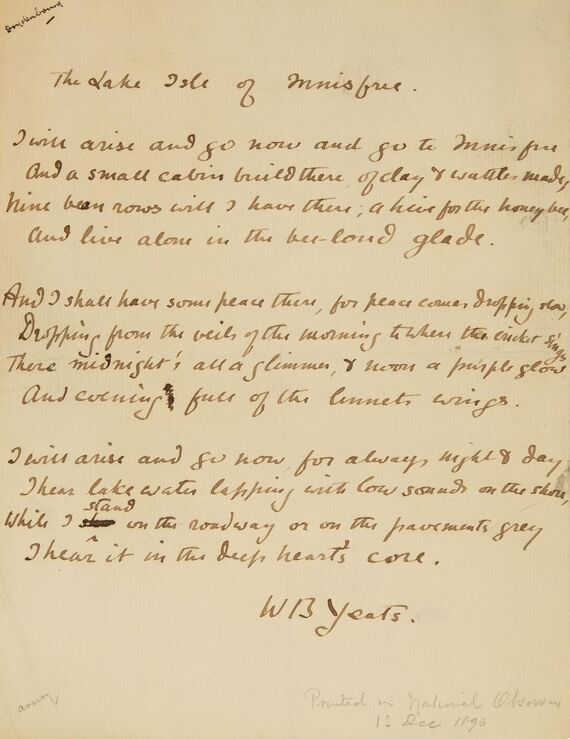 The Lake Isle of Innisfree.
I will arise and go now and go to Innisfree
And a small cabin build there, of clay & wattles made,
Nine bean rows will I have there; a hive for the honey bee,
And live alone in the bee-loud glade.
And I shall have some peace there, for peace comes dropping slow,
Dropping from the veils of the morning to where the cricket sings
There midnight's all a glimmer, & noon a purple glow,
And evening full of the linnets wings.
I will arise and go now, for always night & day
I hear lake water lapping with low sounds on the shore,
stand
While I on the roadway or on the pavements grey
I hear it in the deep heart's core.
W B Yeats.
Printed in National Observer
13 Dec 1890